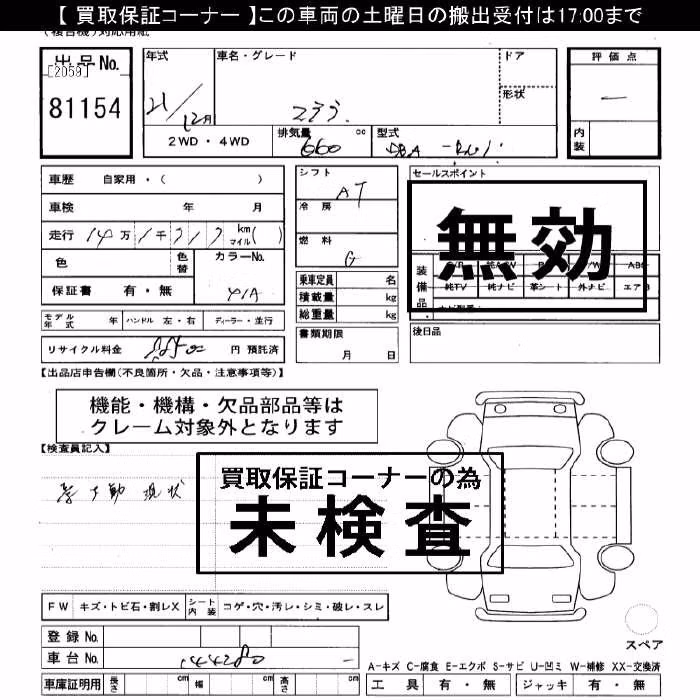 【 買取保証コーナー 】この車両の土曜日の搬出受付は17:00まで
(複合機)対応用紙
出品No.
[2059]
81154
年式 車名・グレード ドア 評価点
21/12月
形状
2WD・4WD 排気量 660 cc 型式 DBA
内装
車歴 自家用・( ) シフト AT セールスポイント
車検 年 月 冷房
走行 14万1千 km マイル( )
無効
燃料 G
色 色替 カラーNo.
保証書 有・無
乗車定員 名
積載量 kg
総重量 kg
装備品
純TV 純ナビ 革シート 外ナビ エアB
モデル年式 年 ハンドル 左・右 ディーラー・並行
書類期限 後日品
年 月 日
リサイクル料金 円 預託済
【出品店申告欄(不良箇所・欠品・注意事項等)】
機能・機構・欠品部品等は
クレーム対象外となります
【検査員記入】
買取保証コーナーの為
不動 現状
未検査
FW キズ・トビ石・割レX シート内装 コゲ・穴・汚レ・シミ・破レ・スレ
登録 No. スペア
車台 No. 144280 －
A-キズ C-腐食 E-エクボ S-サビ U-凹ミ W-補修 XX-交換済
車庫証明用 長さ cm 幅 cm 高さ cm 工具 有・無 ジャッキ 有・無